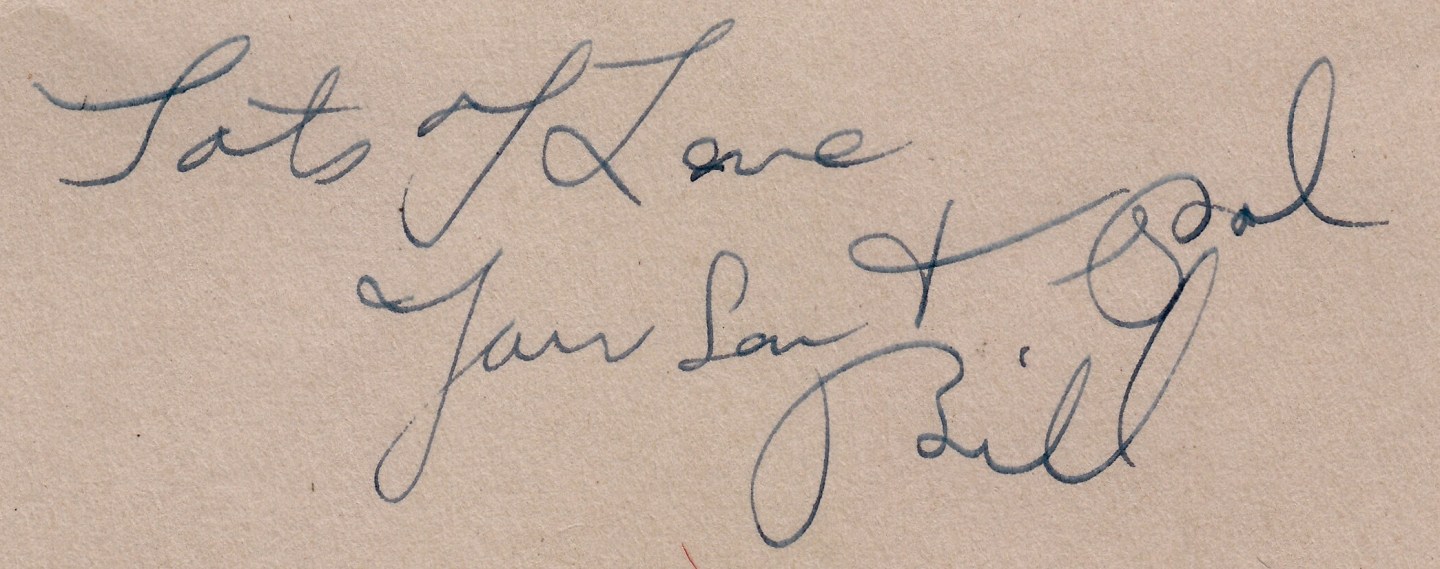 Lots of Love
Your Son & Pal
Bill